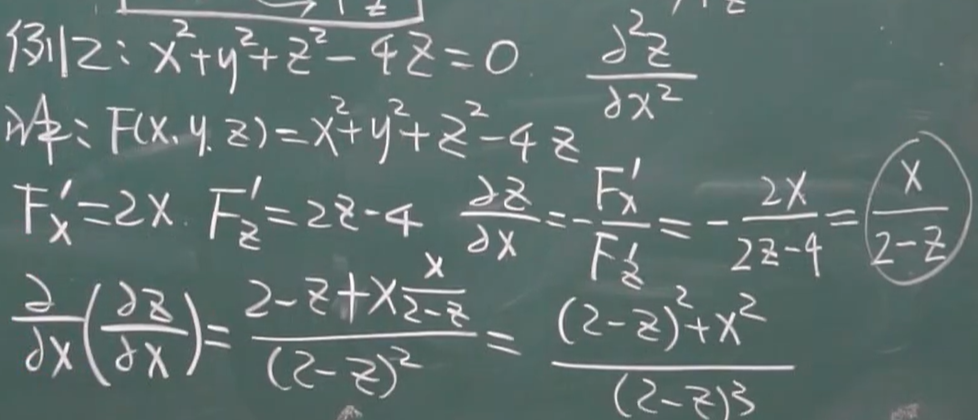 例2: x²+y²+z²-4z=0. ∂²z/∂x²
解: F(x,y,z)=x²+y²+z²-4z
F'x=2x. F'z=2z-4 ∂z/∂x=-F'x/F'z=-2x/(2z-4)=x/(2-z)
∂/∂x(∂z/∂x)=(2-z+x·x/(2-z))/(2-z)²=((2-z)²+x²)/(2-z)³